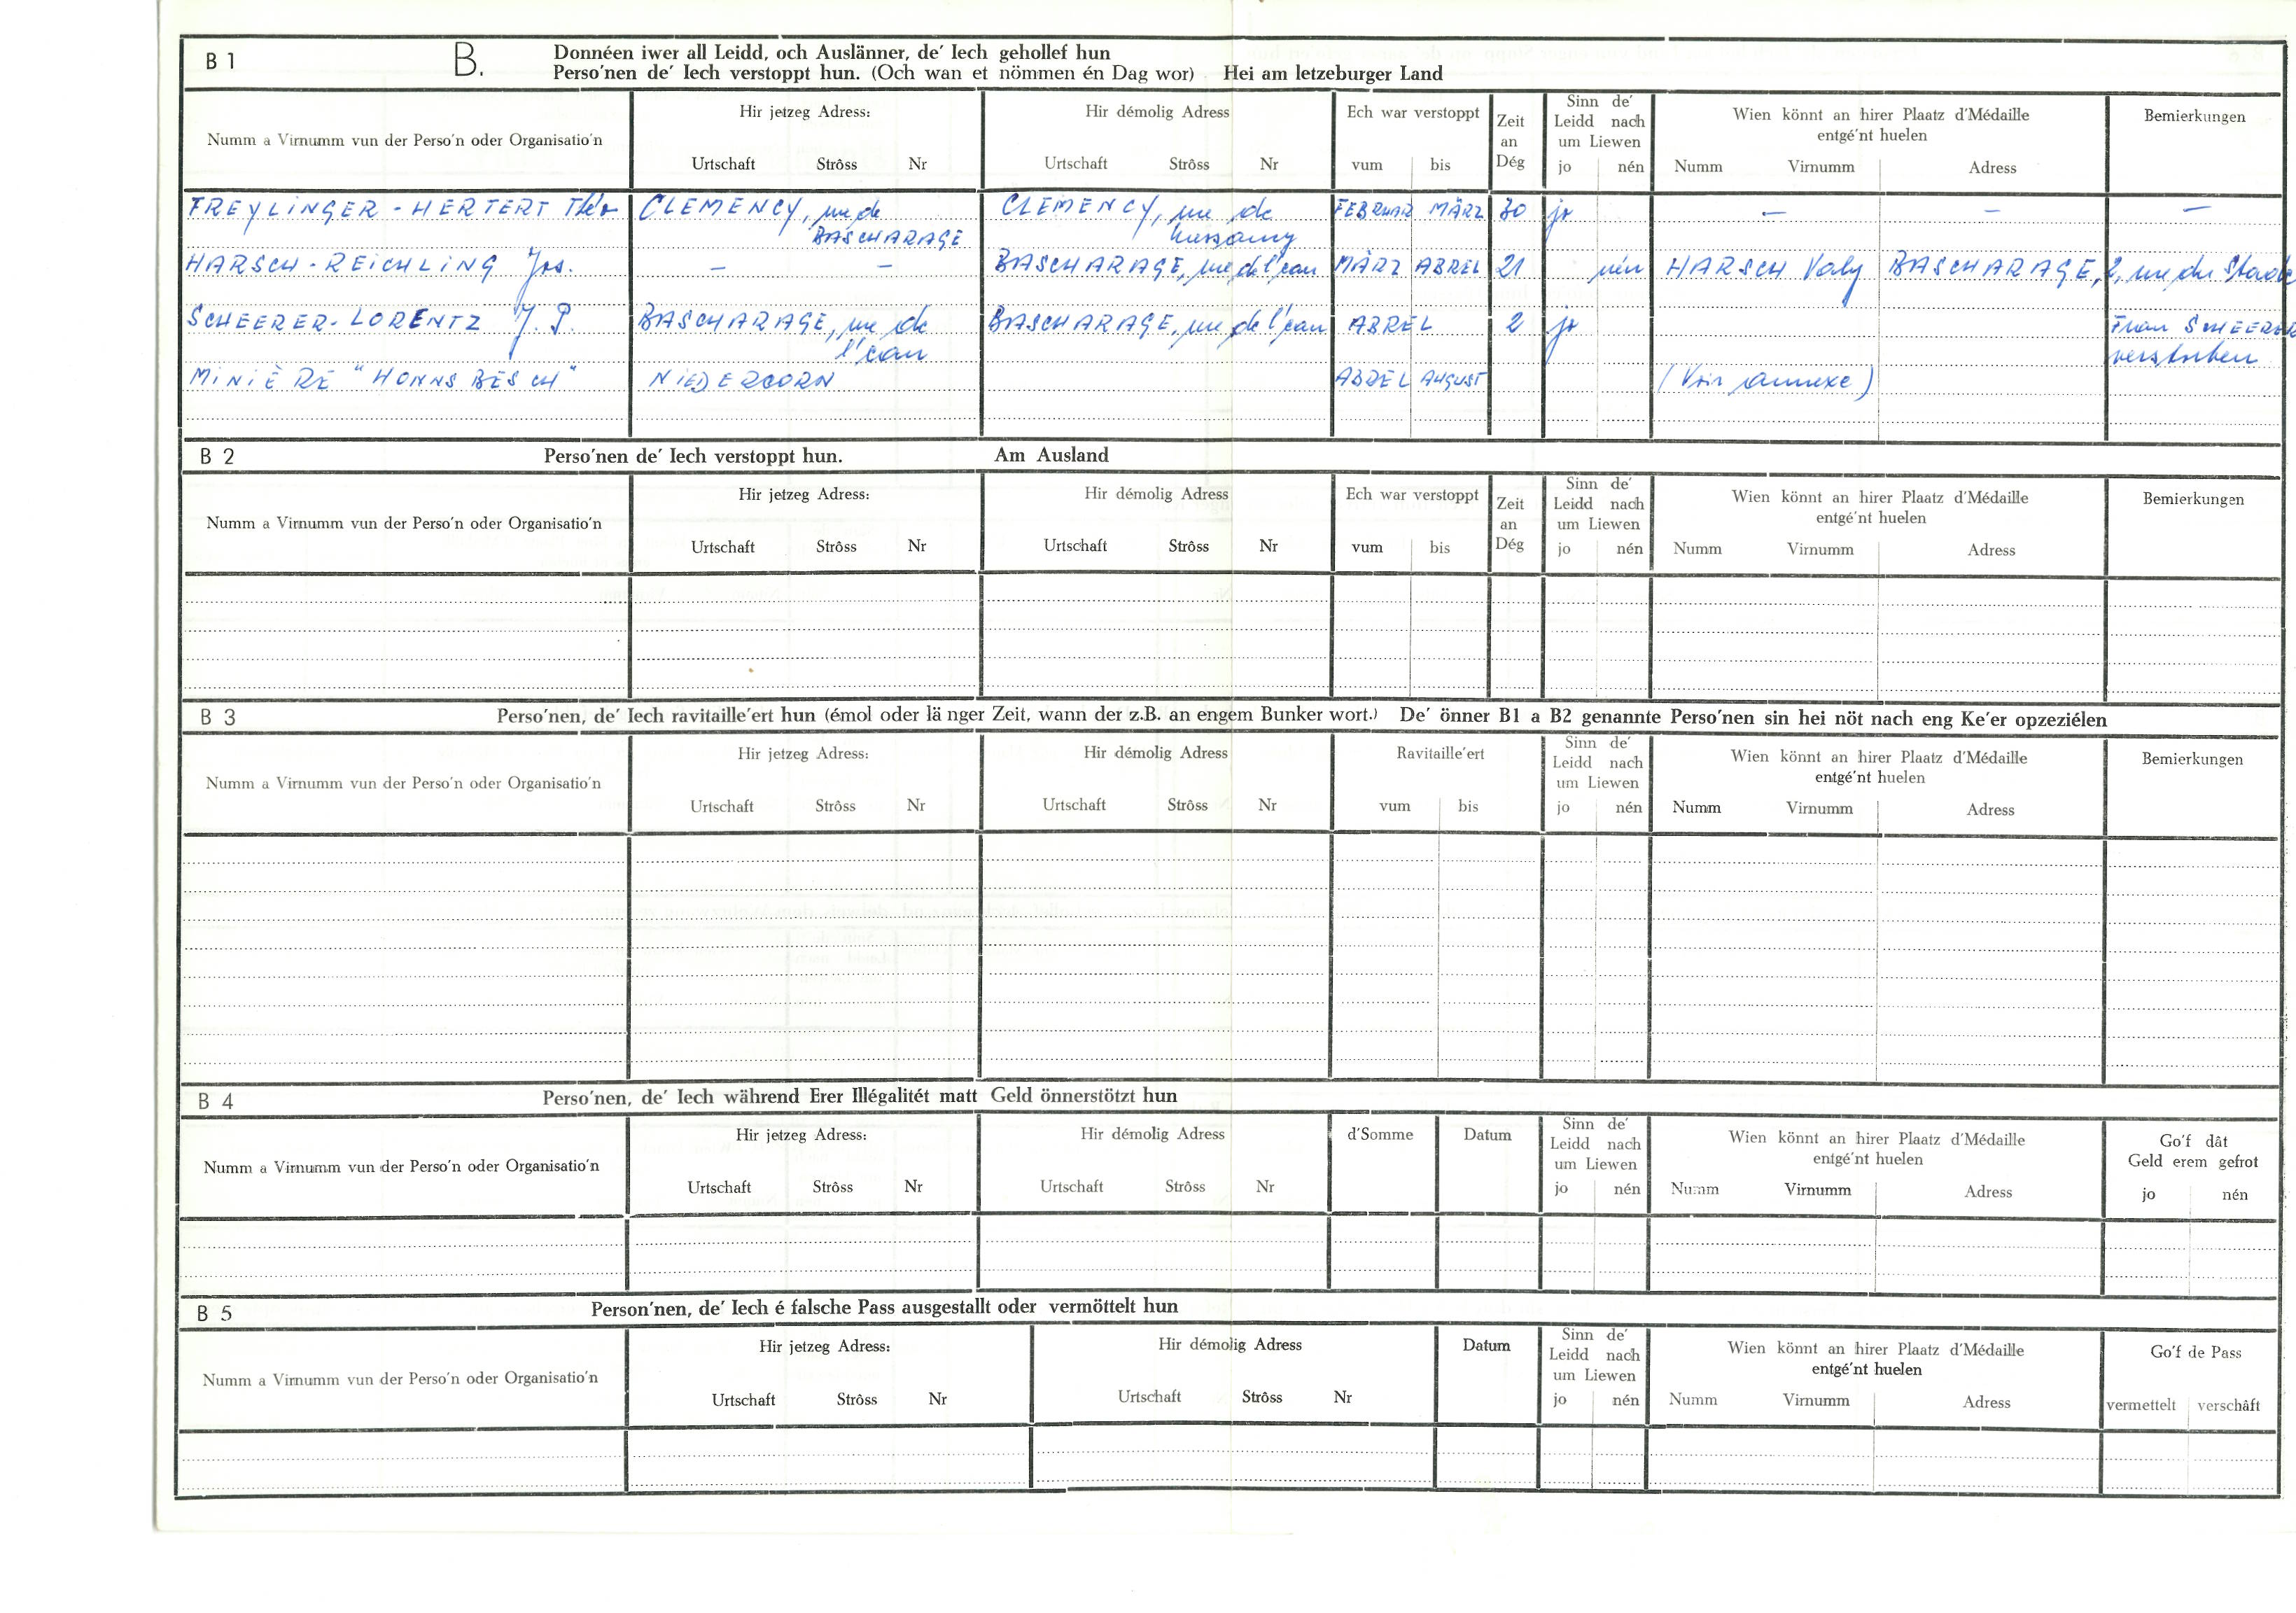 B 1 B. Donnéen iwer all Leidd, och Auslänner, de' Iech gehollef hun
Perso'nen de' Iech verstoppt hun. (Och wan et nömmen én Dag wor) Hei am letzeburger Land
Numm a Virnumm vun der Perso'n oder Organisatio'n
Hir jetzeg Adress:
Urtschaft Strôss Nr
Hir démolig Adress
Urtschaft Strôss Nr
Ech war verstoppt
vum bis
Zeit
an
Dég
Sinn de'
Leidd nach
um Liewen
jo nén
Wien könnt an hirer Plaatz d'Médaille
entgé'nt huelen
Numm Virnumm Adress
Bemierkungen
FREYLINGER - HERTERT Théo CLEMENCY, rue de CLEMENCY, rue de FEBRUAR MÄRZ 30 jo — — —
BASCHARAGE
HARSCH - REICHLING Jos. — — BASCHARAGE, rue de l'eau MÄRZ ABREL 21 nén HARSCH Valy BASCHARAGE, 2, rue du Stade
SCHEERER - LORENTZ J. P. BASCHARAGE, rue de BASCHARAGE, rue de l'eau ABREL 2 jo Frau SCHEERER
l'eau verstorben
MINIÈRE "HONNSBËSCH" NIEDERCORN ABREL AUGUST (Voir annexe)
B 2 Perso'nen de' Iech verstoppt hun. Am Ausland
Numm a Virnumm vun der Perso'n oder Organisatio'n
Hir jetzeg Adress:
Urtschaft Strôss Nr
Hir démolig Adress
Urtschaft Strôss Nr
Ech war verstoppt
vum bis
Zeit
an
Dég
Sinn de'
Leidd nach
um Liewen
jo nén
Wien könnt an hirer Plaatz d'Médaille
entgé'nt huelen
Numm Virnumm Adress
Bemierkungen
B 3 Perso'nen, de' Iech ravitaille'ert hun (émol oder lä nger Zeit, wann der z.B. an engem Bunker wort.) De' önner B1 a B2 genannte Perso'nen sin hei nöt nach eng Ke'er opzeziélen
Numm a Virnumm vun der Perso'n oder Organisatio'n
Hir jetzeg Adress:
Urtschaft Strôss Nr
Hir démolig Adress
Urtschaft Strôss Nr
Ravitaille'ert
vum bis
Sinn de'
Leidd nach
um Liewen
jo nén
Wien könnt an hirer Plaatz d'Médaille
entgé'nt huelen
Numm Virnumm Adress
Bemierkungen
B 4 Perso'nen, de' Iech während Erer Illégalitét matt Geld önnerstötzt hun
Numm a Virnumm vun der Perso'n oder Organisatio'n
Hir jetzeg Adress:
Urtschaft Strôss Nr
Hir démolig Adress
Urtschaft Strôss Nr
d'Somme
Datum
Sinn de'
Leidd nach
um Liewen
jo nén
Wien könnt an hirer Plaatz d'Médaille
entgé'nt huelen
Numm Virnumm Adress
Go'f dât
Geld erem gefrot
jo nén
B 5 Person'nen, de' Iech é falsche Pass ausgestallt oder vermöttelt hun
Numm a Virnumm vun der Perso'n oder Organisatio'n
Hir jetzeg Adress:
Urtschaft Strôss Nr
Hir démolig Adress
Urtschaft Strôss Nr
Datum
Sinn de'
Leidd nach
um Liewen
jo nén
Wien könnt an hirer Plaatz d'Médaille
entgé'nt huelen
Numm Virnumm Adress
Go'f de Pass
vermettelt verschâft